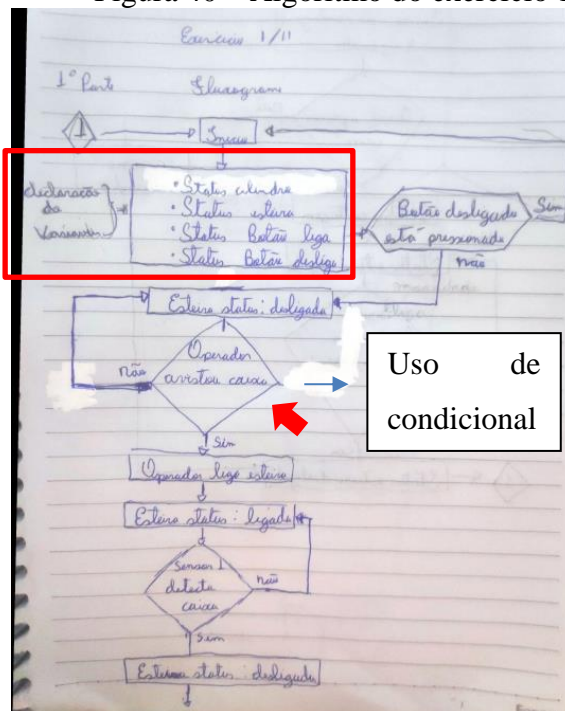 Exercício 1/11
1º Parte Fluxograma
1
Início
declaração
da
Variáveis
• Status cilindro
• Status esteira
• Status Botão liga
• Status Botão desliga
Botão desligado
está pressionado
Sim
não
Esteira status: desligada
Operador
avistou caixa
não
Uso de
condicional
Sim
Operador liga esteira
Esteira status: ligada
Sensor 1
detecta
caixa
não
Sim
status: desligada